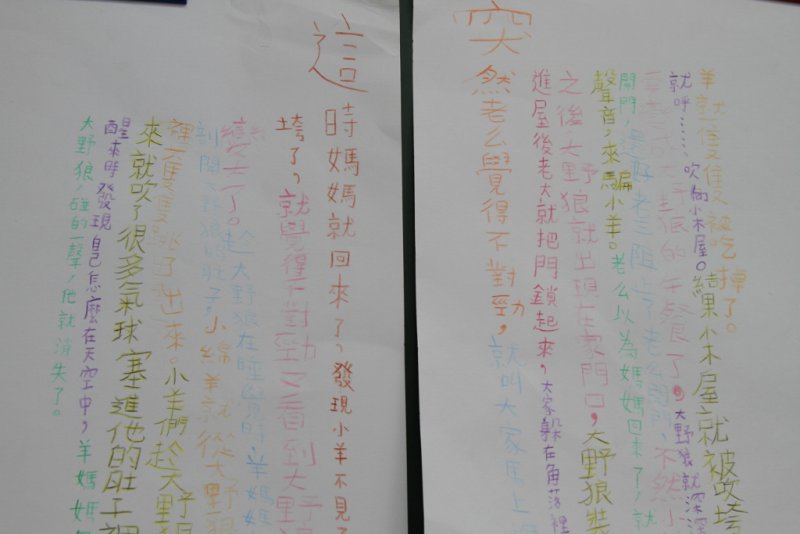 突然老么覺得不對勁，就叫大家馬上
進屋後老大就把門鎖起來，大家躲在角落裡
之後大野狼就出現在家門口，大野狼裝
聲音，來騙小羊。老么以為媽媽回來了，就
開門，還好老三阻止了老么開門，不然小
成大野狼的午餐了。大野狼就深深
就呼……吹向小木屋。結果小木屋就被吹垮
羊就隻隻被吃掉了。
這時媽媽就回來了，發現小羊不見了
垮了，就覺得不對勁又看到大野
變大了。趁大野狼在睡覺時羊媽媽
剖開大野狼的肚子，小綿羊就從大野狼
裡隻隻跳了出來。小羊們趁大野狼
來就吹了很多氣球塞進他的肚子裡
醒來時發現自己怎麼在天空中，羊媽媽
大野狼，碰的一聲，他就消失了。